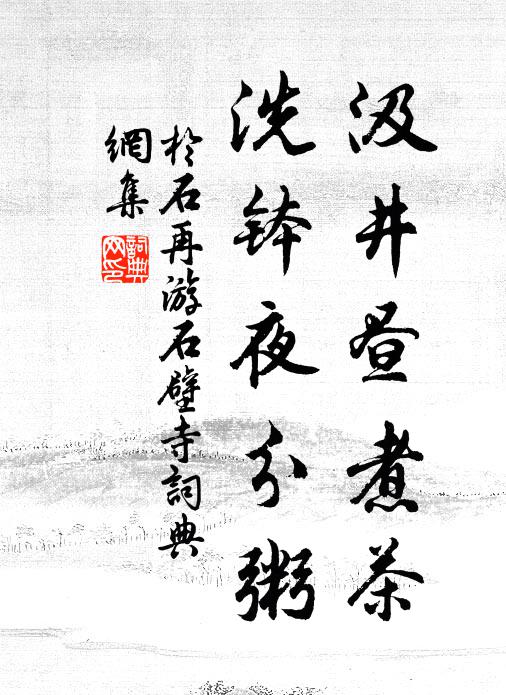 汲井昼煮茶
洗钵夜分粥
於石再游石壁寺詞典
網集
詞典網印